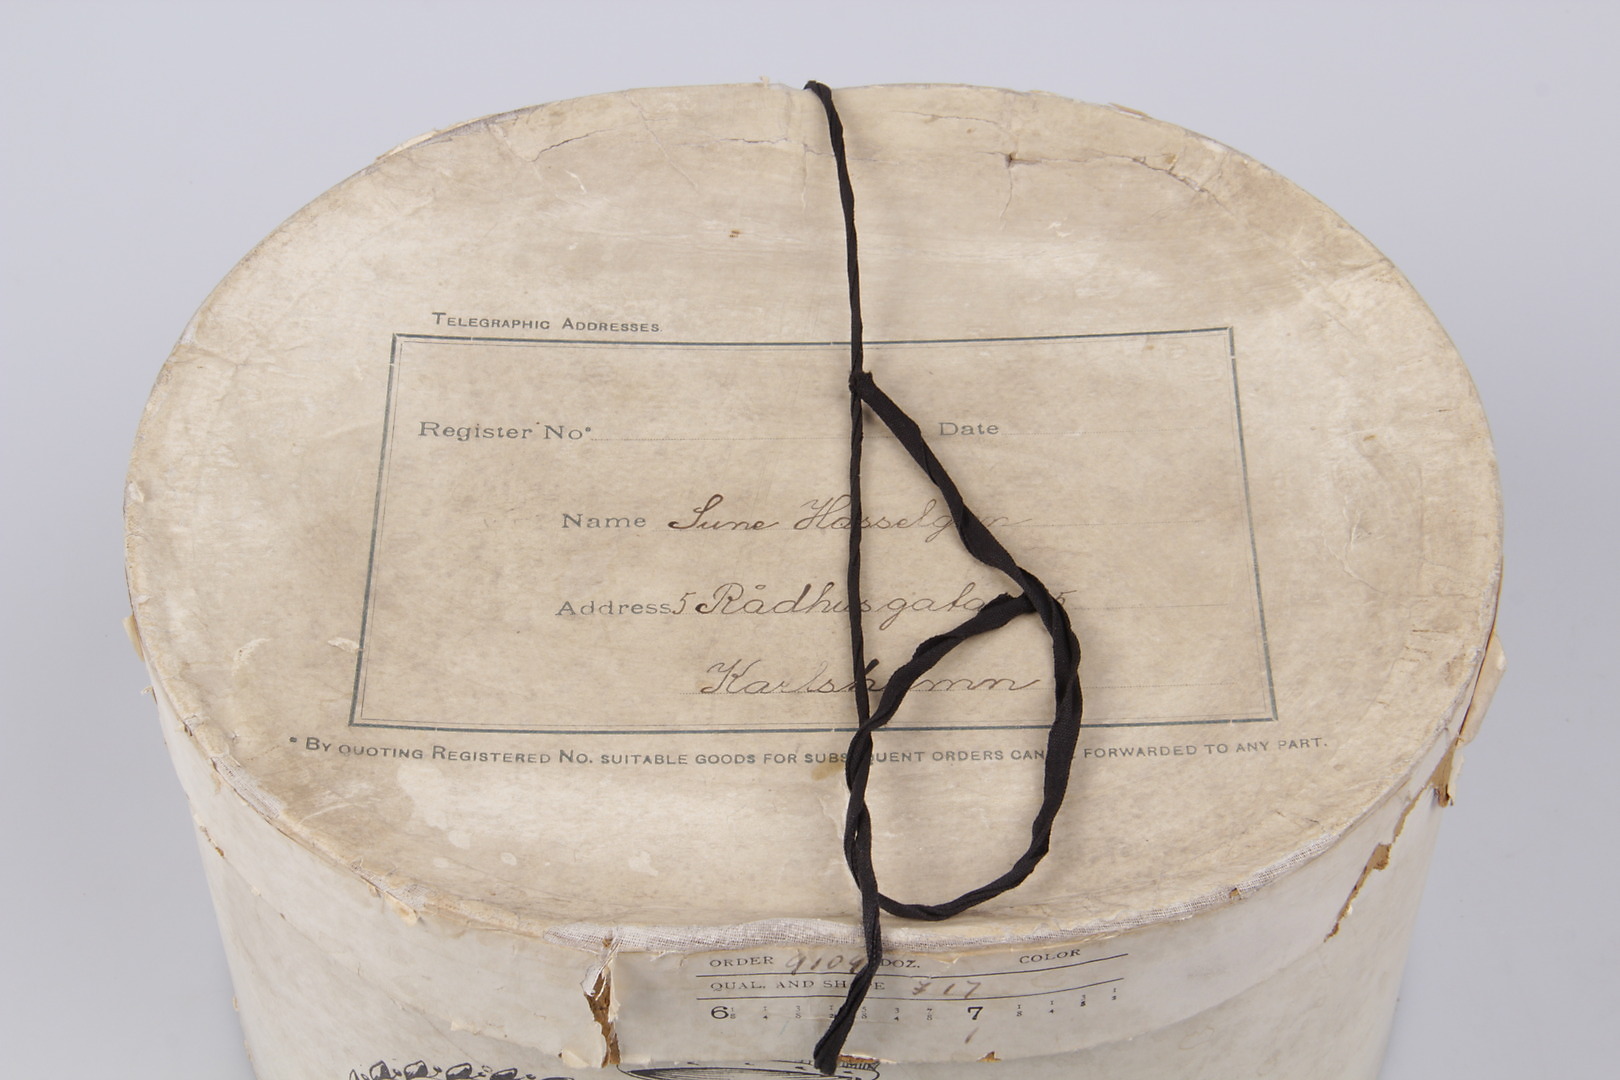 TELEGRAPHIC ADDRESSES
Register No. Date
Name Sune
Address 5 Rådhusgatan 5
Karlshamn
* BY QUOTING REGISTERED No. SUITABLE GOODS FOR SUBSEQUENT ORDERS CAN FORWARDED TO ANY PART.
ORDER 9109 DOZ. COLOR
QUAL. AND SHAPE 17
6 1/8 1/4 3/8 1/2 5/8 3/4 7/8 7 1/8 1/4 3/8 1/2